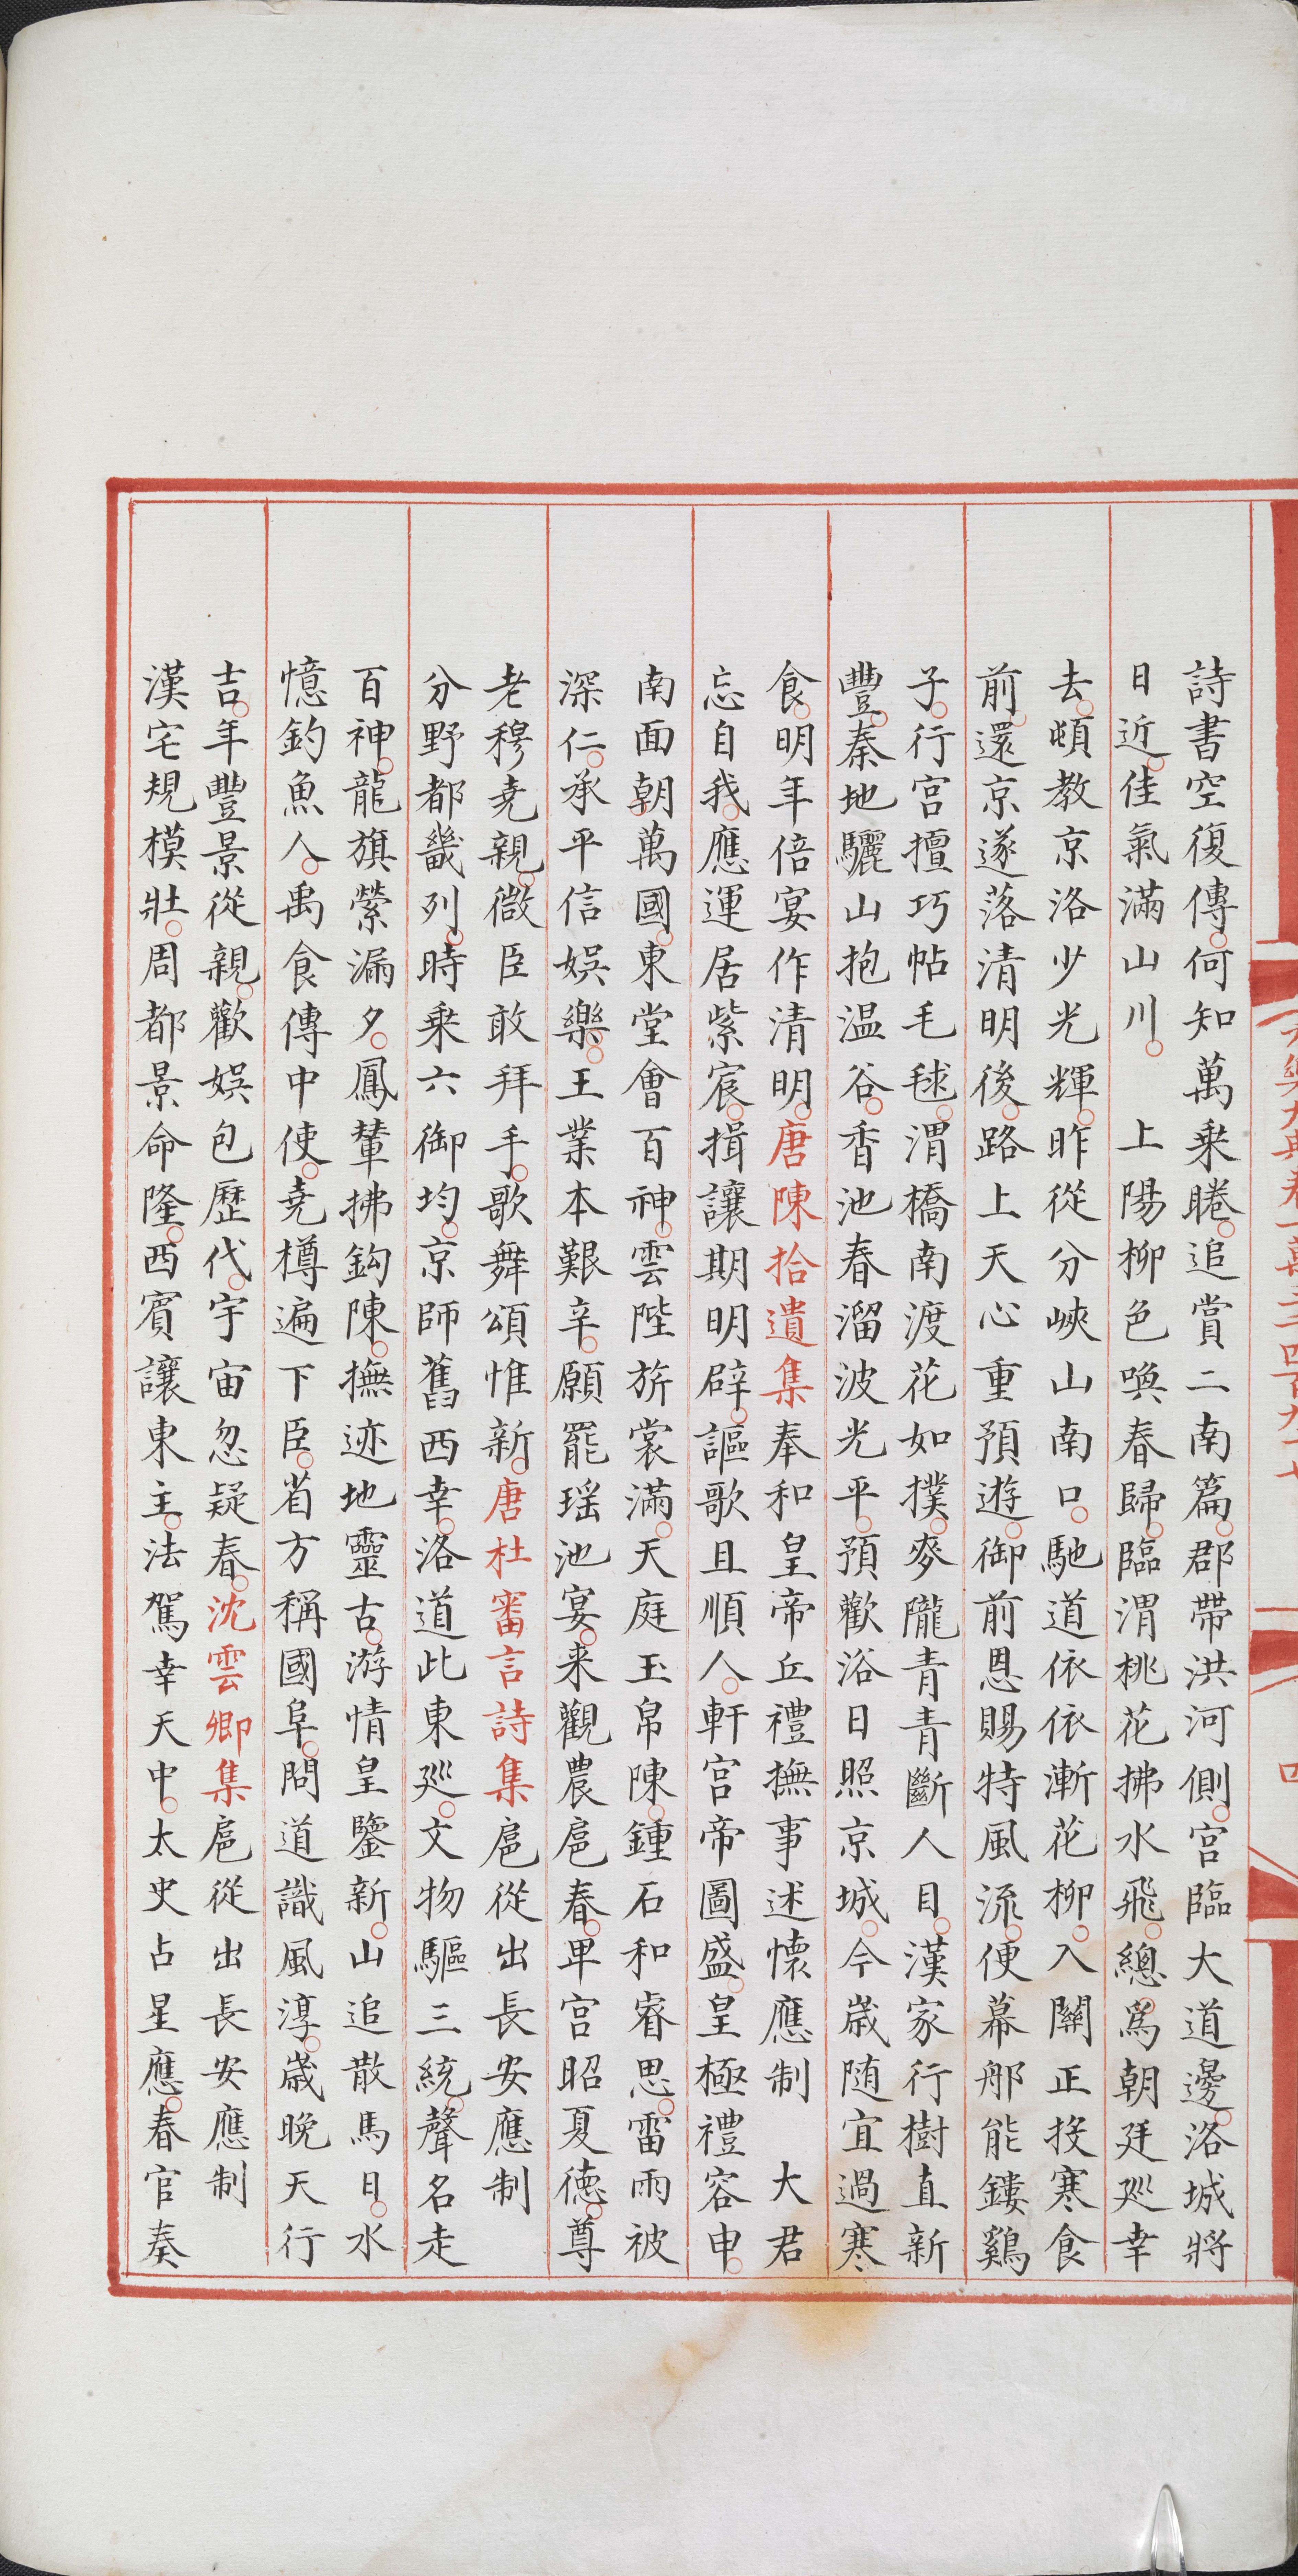 詩書空復傳何知萬乗睠追賞二南篇郡帶洪河側宫臨大道邊洛城將
日近佳氣滿山川　上陽柳色喚春歸臨渭桃花拂水飛總爲朝廷廵幸
去頓教京洛少光輝昨從分峽山南口馳道依依漸花柳入關正投寒食
前還京遂落清明後路上天心重預遊御前恩賜特風流便幕那能鏤鷄
子行宫擅巧帖毛毬渭橋南渡花如撲麥隴青青斷人目漢家行樹直新
豐秦地驪山抱温谷香池春溜波光平預歡浴日照京城今歳随宜過寒
食明年倍宴作清明唐陳拾遺集奉和皇帝丘禮撫事述懷應制　大君
忘自我應運居紫宸揖讓期明辟謳歌且順人軒宫帝圖盛皇極禮容申
南面朝萬國東堂會百神雲陛旂裳滿天庭玉帛陳鍾石和睿思雷雨被
深仁承平信娯樂王業本艱辛願罷瑶池宴来觀農扈春卑宫昭夏德尊
老穆堯親微臣敢拜手歌舞頌惟新唐杜審言詩集扈從出長安應制
分野都畿列時乗六御均京師舊西幸洛道此東廵文物驅三統聲名走
百神龍旗縈漏夕鳳輦拂鈎陳撫迹地靈古游情皇鑒新山追散馬日水
憶釣魚人禹食傳中使堯樽遍下臣省方稱國阜問道識風淳歳晩天行
吉年豐景從親歡娯包歷代宇宙忽疑春沈雲卿集扈從出長安應制
漢宅規模壯周都景命隆西賓讓東主法駕幸天中太史占星應春官奏